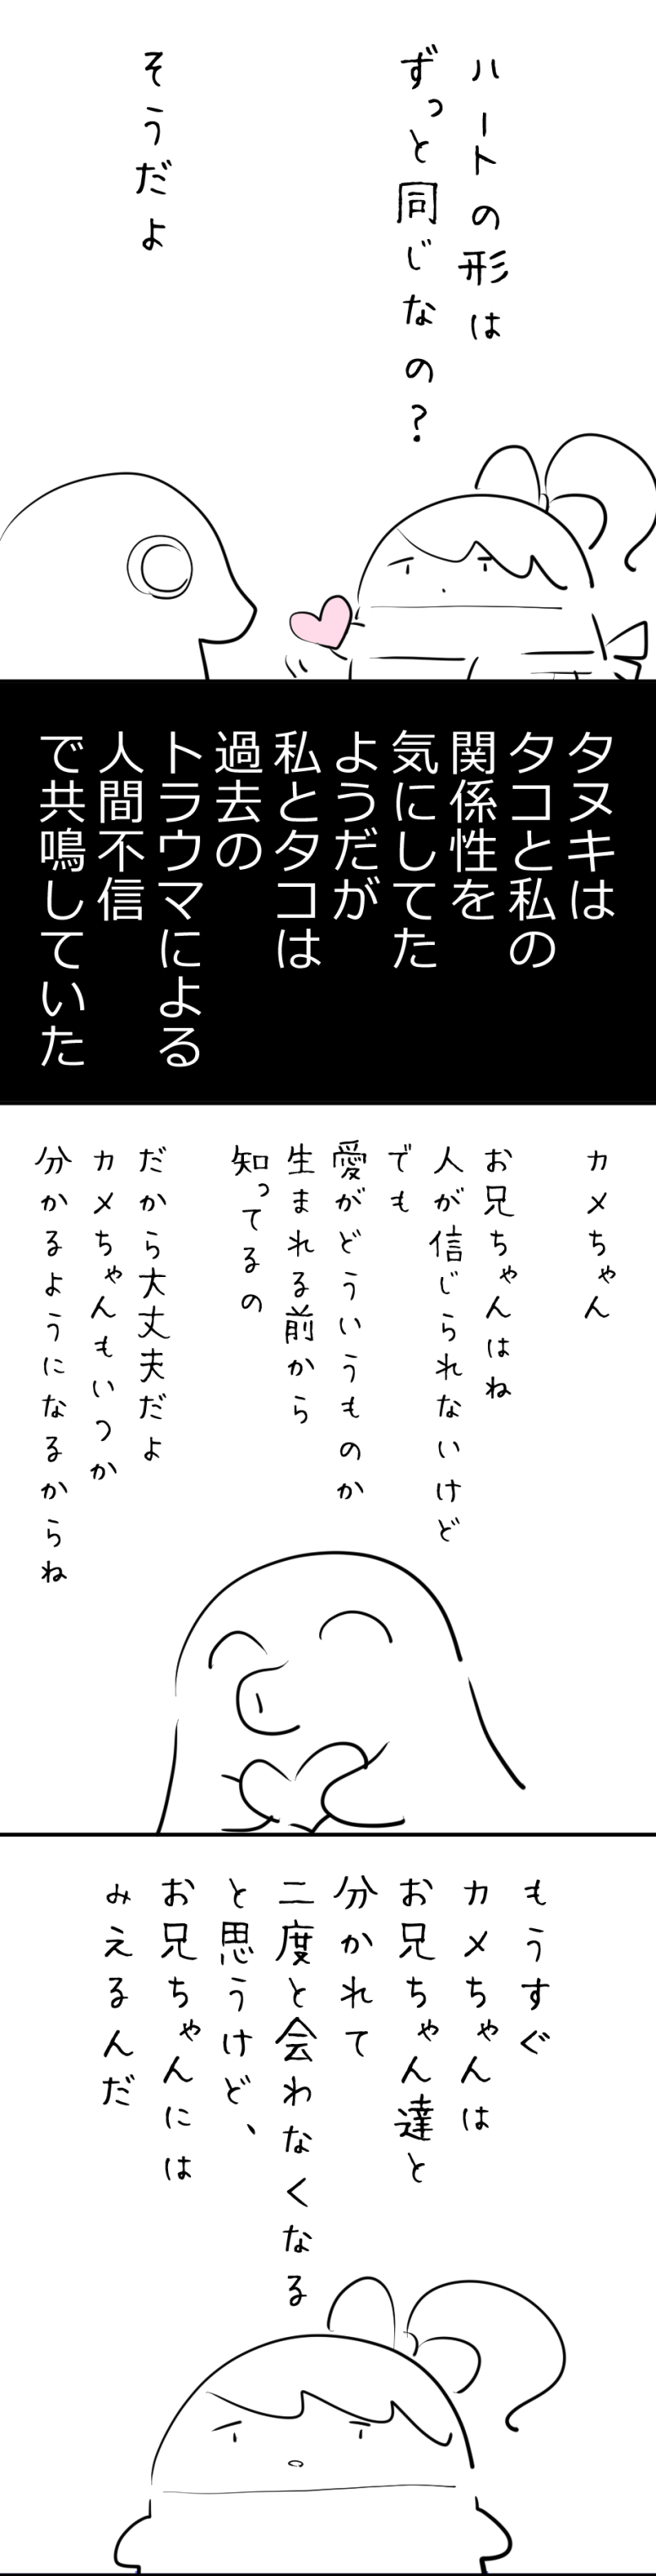 ハートの形は
ずっと同じなの?
そうだよ
タヌキは
タコと私の
関係性を
気にしてた
ようだが
私とタコは
過去の
トラウマによる
人間不信
で共鳴していた
カメちゃん
お兄ちゃんはね
人が信じられないけど
でも
愛がどういうものか
生まれる前から
知ってるの
だから大丈夫だよ
カメちゃんもいつか
分かるようになるからね
もうすぐ
カメちゃんは
お兄ちゃん達と
分かれて
二度と会わなくなる
と思うけど、
お兄ちゃんには
みえるんだ